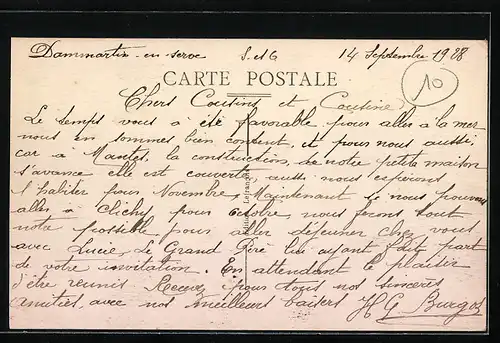 Dammartin-en-serve S-et-O 14 Septembre 1928
10
CARTE POSTALE
Chers Cousins et Cousine
Le temps vous a été favorable pour aller à la mer
nous en sommes bien content, et pour nous aussi,
car à Mantes, la construction, de notre petite maison
s'avance elle est couverte, aussi nous espérons
l'habiter pour Novembre, Maintenant si nous pouvons
aller à Clichy pour octobre, nous feront tout
notre possible pour aller déjeuner chez vous
avec Lucie, Le Grand Père lui ayant fait part
de votre invitation. En attendant le plaisir
d'être reunis Recevez pour tous nos sincères
amitiés, avec nos meilleurs baisers H G Burgot